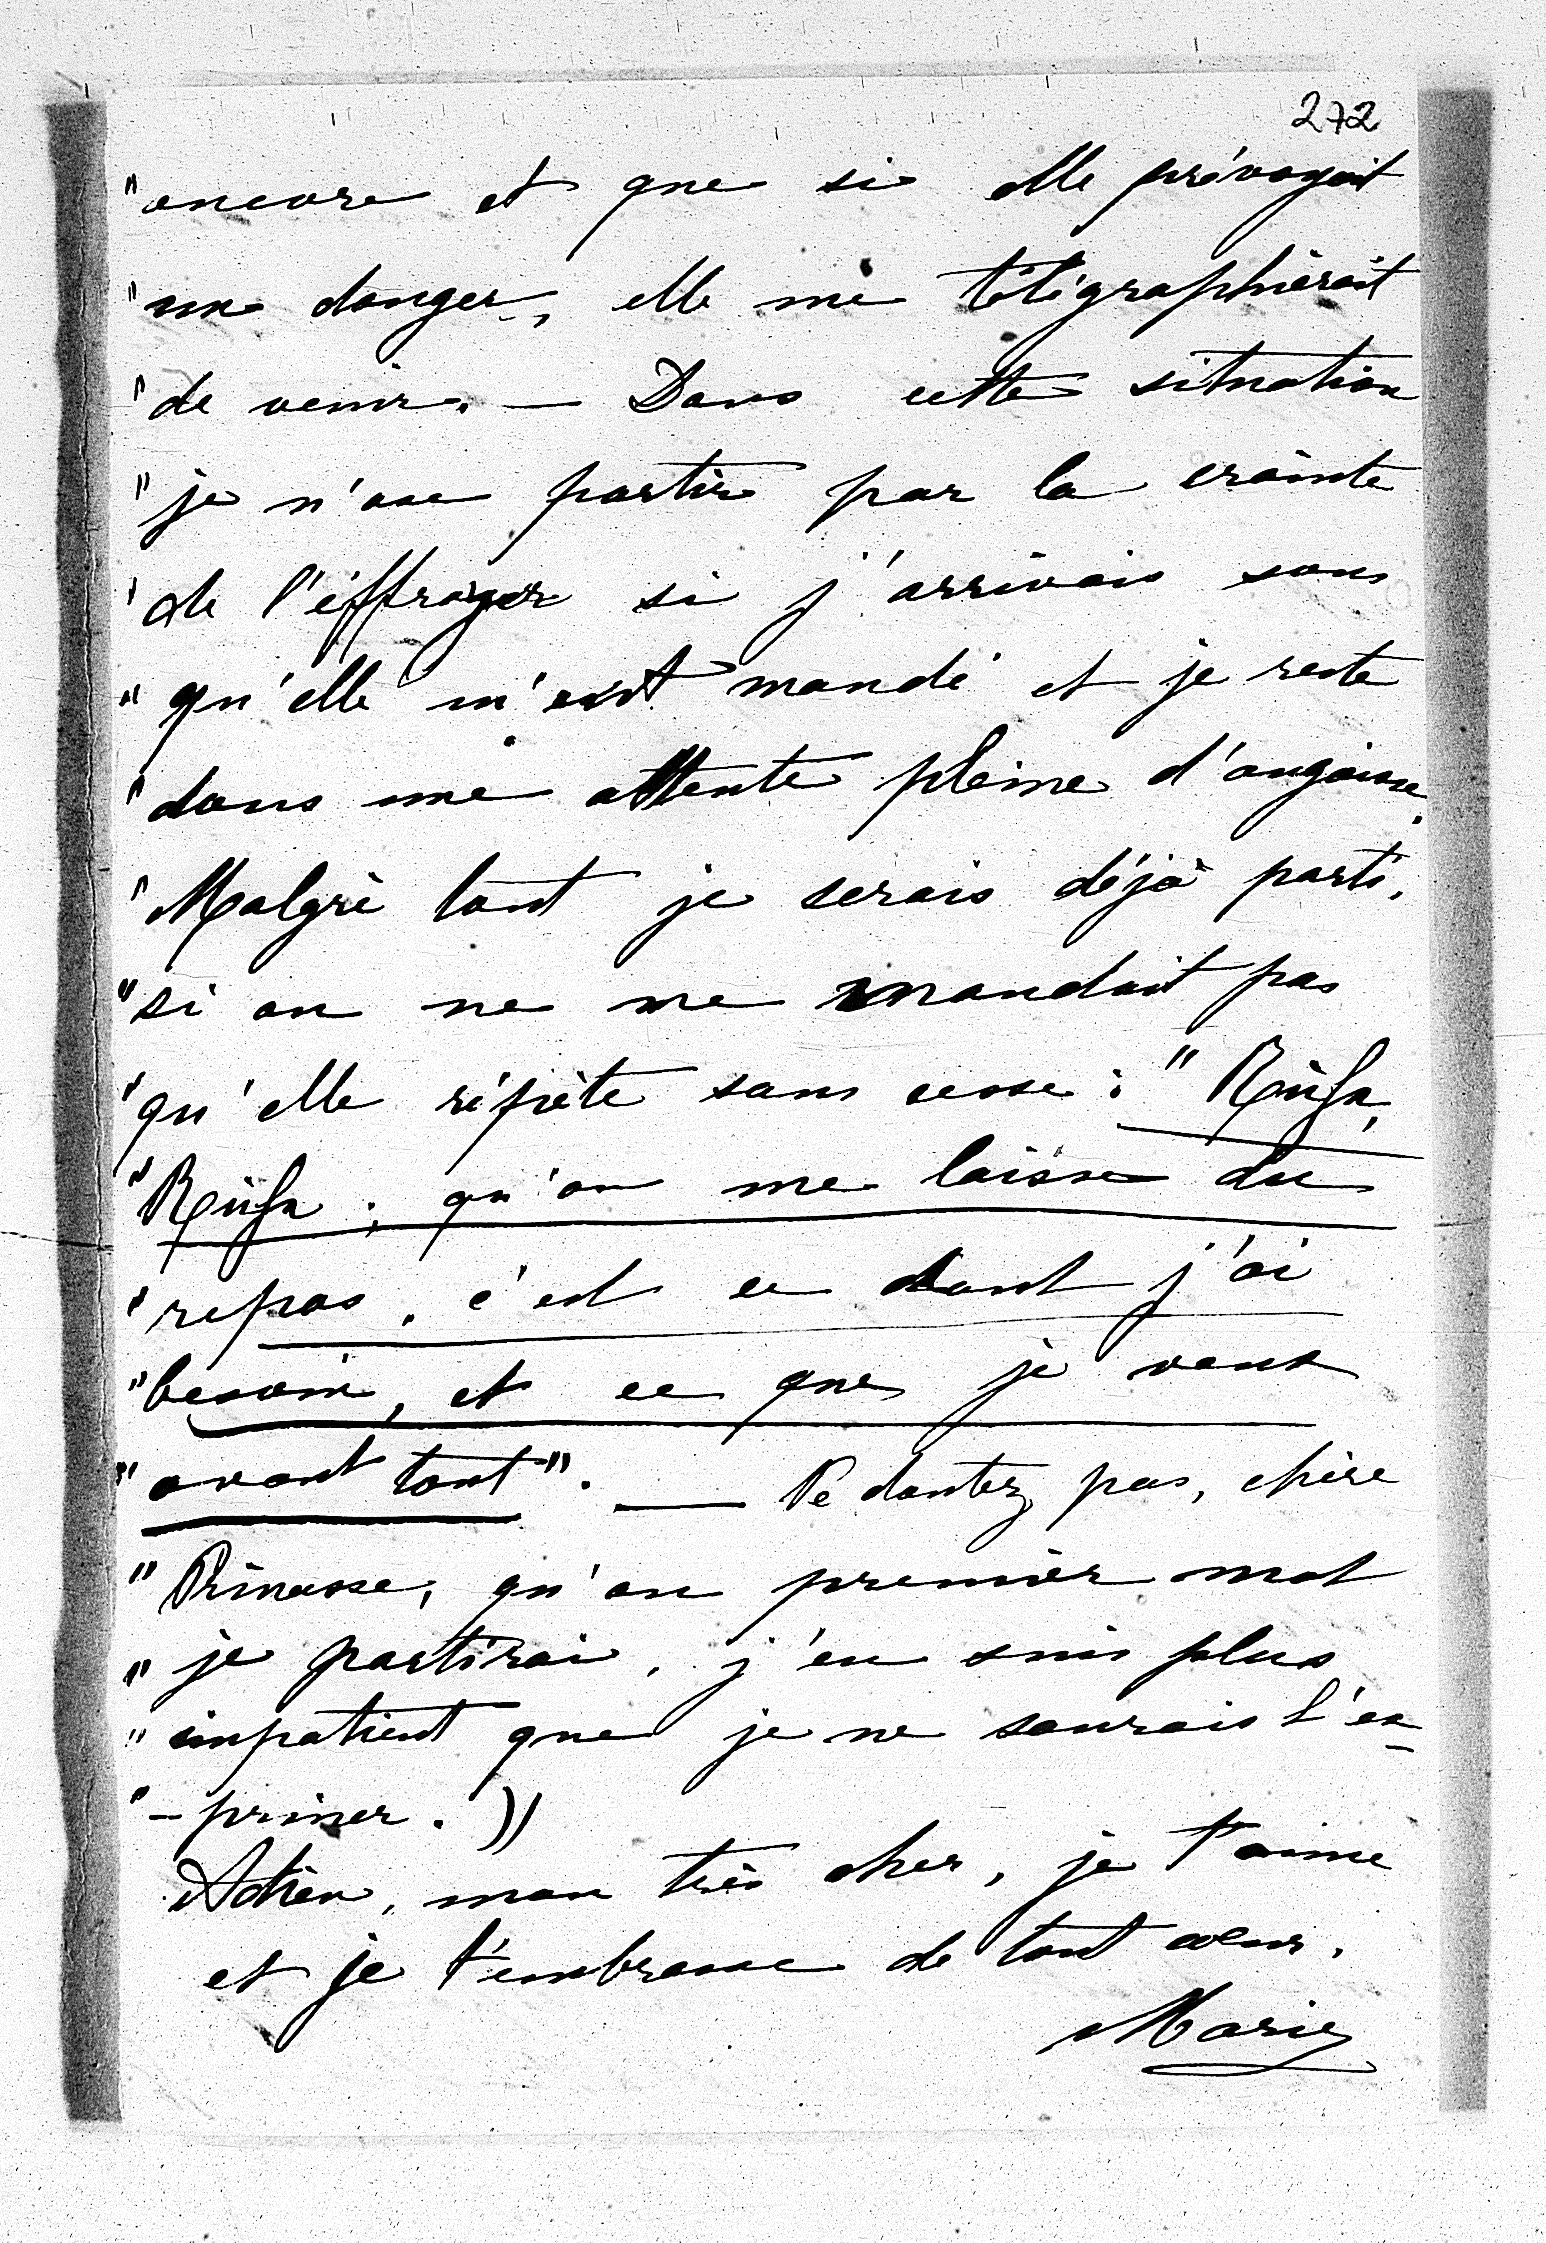 272
"encore et que si elle prévoyait
"un danger, elle me télégraphierait
"de venir. — Dans cette situation
"je n'ose partir par la crainte
"de l'éffrayer si j'arrivais sans
"qu'elle m'eut mandé et je reste
"dans une attente pleine d'angoisse.
"Malgré tout je serais déjà parti,
"si on ne me mandait pas
"qu'elle répète sans cesse: "Ruhe,
"Ruhe; qu'on me laisse du
"repos, c'est ce dont j'ai
"besoin, et ce que je veux
"avant tout". — Ne doutez pas, chère
"Princesse, qu'au premier mot
"je partirai, j'en suis plus
"impatient que je ne saurais l'ex-
"-primer."
Adieu, mon très cher, je t'aime
et je t'embrasse de tout cœur.
Marie